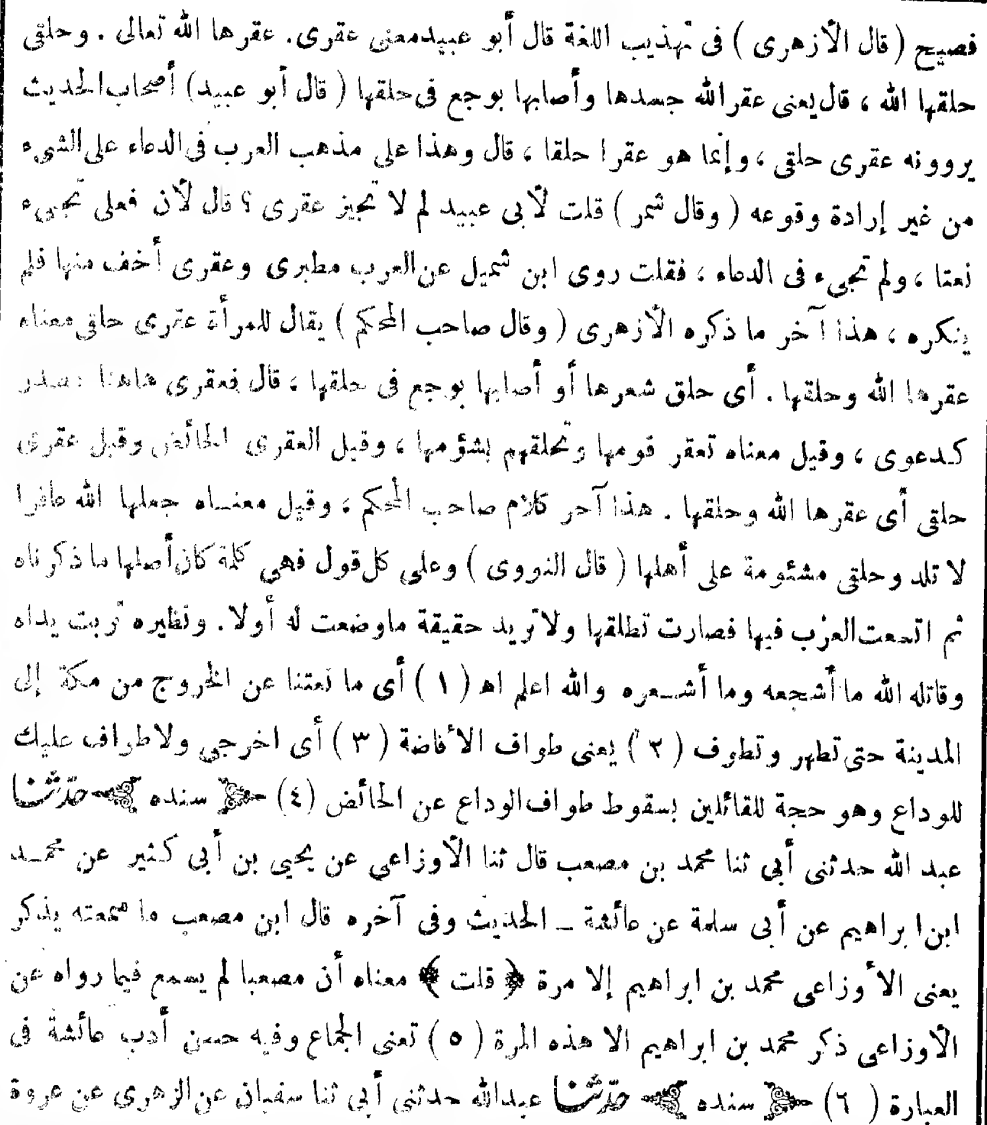 فصيح ( قال الأزهرى ) فى تهذيب اللغة قال أبو عبيد معنى عقرى . عقرها الله تعالى . وحلقى
حلقها الله ، قال يعنى عقر الله جسدها وأصابها بوجع فى حلقها ( قال أبو عبيد ) أصحاب الحديث
يروونه عقرى حلقى ، وإنما هو عقرا حلقا ، قال وهذا على مذهب العرب فى الدعاء على الشىء
من غير إرادة وقوعه ( وقال شمر ) قلت لأبى عبيد لم لا تجيز عقرى ؟ قال لأن فعلى تجىء
نعتا ، ولم تجىء فى الدعاء ، فقلت روى ابن شميل عن العرب مطبرى وعقرى أخف منها فلم
ينكره ، هذا آخر ما ذكره الأزهرى ( وقال صاحب المحكم ) يقال للمرأة عقرى حلقى معناه
عقرها الله وحلقها . أى حلق شعرها أو أصابها بوجع فى حلقها ، قال فعقرى هاهنا مصدر
كدعوى ، وقيل معناه تعقر قومها وتحلقهم بشؤمها ، وقيل العقرى الحائض وقيل عقرى
حلقى أى عقرها الله وحلقها . هذا آخر كلام صاحب المحكم ، وقيل معناه جعلها الله عاقرا
لا تلد وحلقى مشئومة على أهلها ( قال النووى ) وعلى كل قول فهى كلمة كان أصلها ما ذكرناه
ثم اتسعت العرب فيها فصارت تطلقها ولا تريد حقيقة ما وضعت له أولا . ونظيره تربت يداه
وقاتله الله ما أشجعه وما أشعره والله اعلم اه ( ١ ) أى ما نعتنا عن الخروج من مكة إلى
المدينة حتى تطهر وتطوف ( ٢ ) يعنى طواف الأفاضة ( ٣ ) أى اخرجى ولا طواف عليك
للوداع وهو حجة للقائلين بسقوط طواف الوداع عن الحائض (٤) سنده حدثنا
عبد الله حدثنى أبى ثنا محمد بن مصعب قال ثنا الأوزاعى عن يحيى بن أبى كثير عن محمد
ابن ابراهيم عن أبى سلمة عن عائشة ــ الحديث وفى آخره قال ابن مصعب ما سمعته يذكر
يعنى الأوزاعى محمد بن ابراهيم إلا مرة ﴿ قلت ﴾ معناه أن مصعبا لم يسمع فيما رواه عن
الأوزاعى ذكر محمد بن ابراهيم الا هذه المرة ( ٥ ) تعنى الجماع وفيه حسن أدب عائشة فى
العبارة ( ٦ ) سنده حدثنا عبدالله حدثنى أبى ثنا سفيان عن الزهرى عن عروة